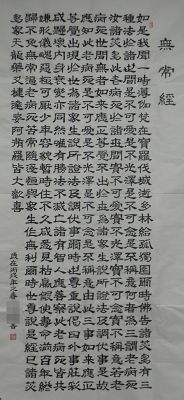 無常經
如是我聞一時薄伽梵在室羅伐城逝多林給孤獨園爾時佛告諸苾芻有三
種法於諸世間是不可愛是不光澤是不可念是不稱意何者為三謂老病死
汝諸苾芻此老病死於諸世間實不可愛實不光澤實不可念實不稱意若老
病死世間無者如來應正等覺不出於世為諸眾生說所證法及調伏事是故
應知此老病死於諸世間是不可愛是不光澤是不可念是不稱意由此三事
如來應正等覺出現於世為諸眾生說所證法及調伏事爾時世尊重說頌曰外事莊彩
咸歸壞內身衰變亦同然唯有勝法不滅亡諸有智人應善察此老病死皆共
嫌形儀醜惡極可厭少年容貌暫時住不久咸悉見枯羸假使壽命滿百年終
歸不免無常逼老病死苦常隨逐恒與眾生作無利爾時世尊說是經已諸苾
芻眾天龍藥叉揵闥婆阿蘇羅等皆大歡喜
歲在丙戌年之春